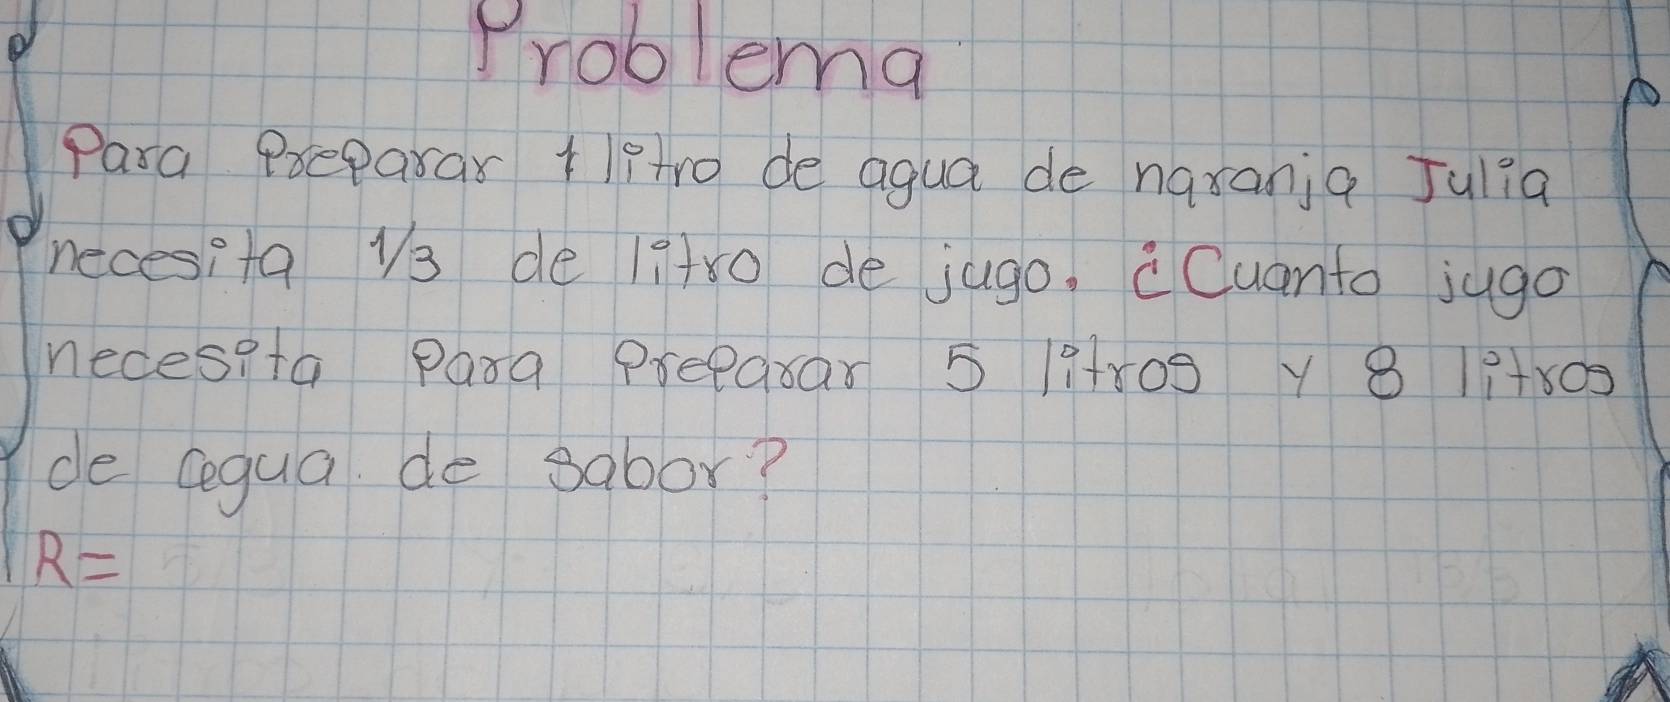 Problema
Para Preparar 1 litro de agua de naranja Julia
necesita 1/3 de litro de jugo. ¿Cuanto jugo
necesita Para Preparar 5 litros y 8 litros
de agua de sabor?
R=